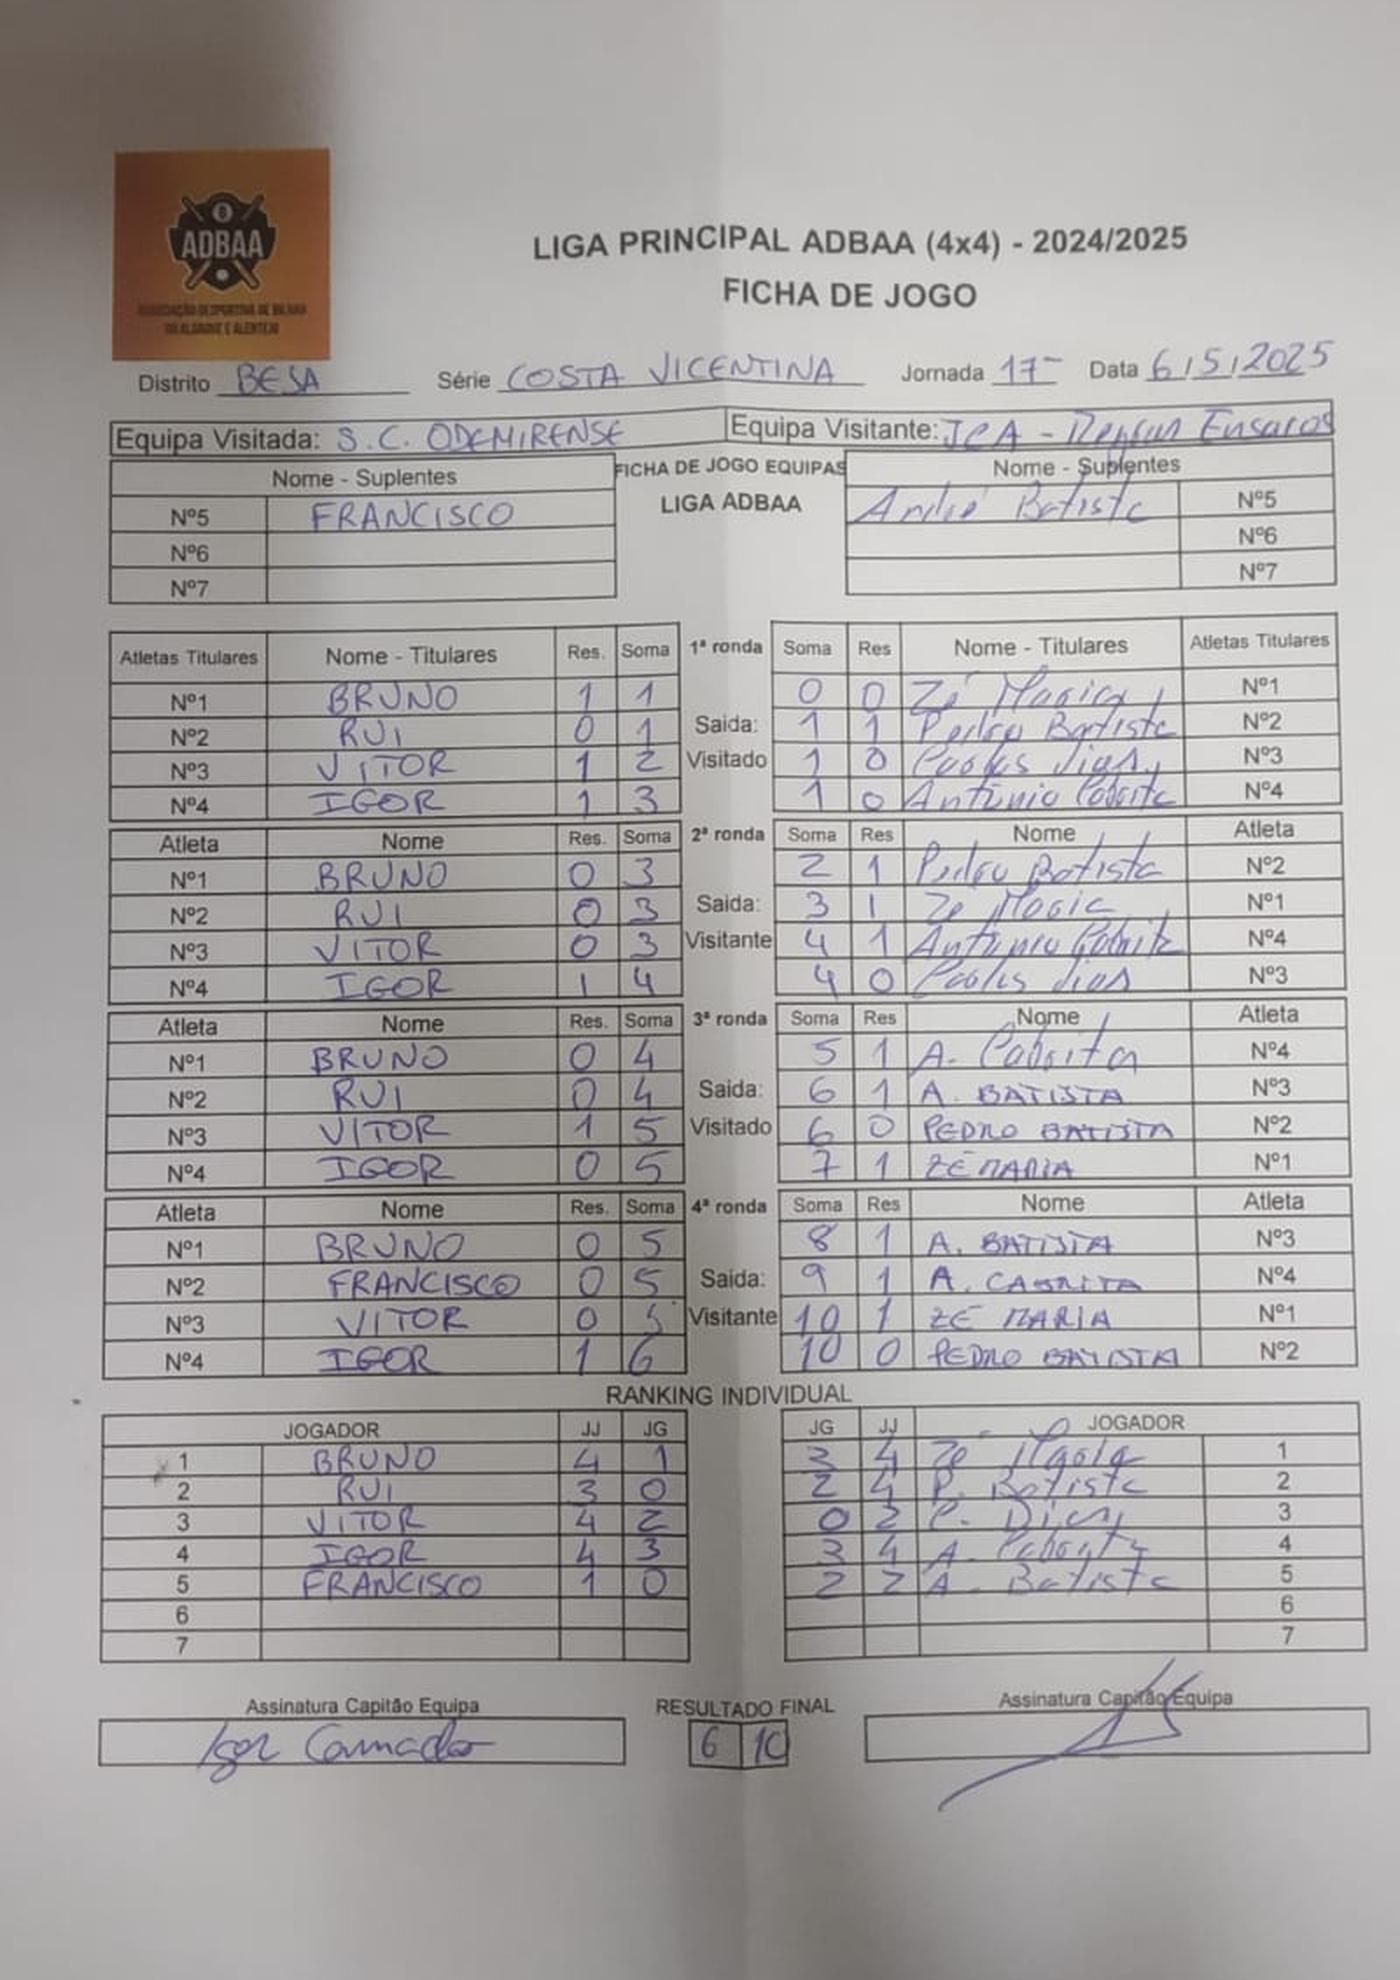 ADBAA
ASSOCIAÇÃO DESPORTIVA DE BILHAR
DO ALGARVE E ALENTEJO
LIGA PRINCIPAL ADBAA (4x4) - 2024/2025
FICHA DE JOGO
Distrito BESA Série COSTA VICENTINA Jornada 17ª Data 6/5/2025
Equipa Visitada: S.C. ODEMIRENSE Equipa Visitante: JCA -
Nome - Suplentes FICHA DE JOGO EQUIPAS Nome - Suplentes
LIGA ADBAA
Nº5 FRANCISCO André Batista Nº5
Nº6 Nº6
Nº7 Nº7
Atletas Titulares Nome - Titulares Res. Soma 1ª ronda Soma Res Nome - Titulares Atletas Titulares
Nº1 BRUNO 1 1 0 0 Zé Maria Nº1
Nº2 RUI 0 1 Saida: 1 1 Pedro Batista Nº2
Nº3 VITOR 1 2 Visitado 1 0 dias Nº3
Nº4 IGOR 1 3 1 0 António Cabrita Nº4
Atleta Nome Res. Soma 2ª ronda Soma Res Nome Atleta
Nº1 BRUNO 0 3 2 1 Pedro Batista Nº2
Nº2 RUI 0 3 Saida: 3 1 Zé Maria Nº1
Nº3 VITOR 0 3 Visitante 4 1 António Cabrita Nº4
Nº4 IGOR 1 4 4 0 dias Nº3
Atleta Nome Res. Soma 3ª ronda Soma Res Nome Atleta
Nº1 BRUNO 0 4 5 1 A. Cabrita Nº4
Nº2 RUI 0 4 Saida: 6 1 A. BATISTA Nº3
Nº3 VITOR 1 5 Visitado 6 0 PEDRO BATISTA Nº2
Nº4 IGOR 0 5 7 1 ZÉ MARIA Nº1
Atleta Nome Res. Soma 4ª ronda Soma Res Nome Atleta
Nº1 BRUNO 0 5 8 1 A. BATISTA Nº3
Nº2 FRANCISCO 0 5 Saida: 9 1 A. CABRITA Nº4
Nº3 VITOR 0 5 Visitante 10 1 ZÉ MARIA Nº1
Nº4 IGOR 1 6 10 0 PEDRO BATISTA Nº2
RANKING INDIVIDUAL
JOGADOR JJ JG JG JJ JOGADOR
1 BRUNO 4 1 3 4 Zé Maria 1
2 RUI 3 0 2 4 P. Batista 2
3 VITOR 4 2 0 2 C. Dias 3
4 IGOR 4 3 3 4 A. Cabrita 4
5 FRANCISCO 1 0 2 2 A. Batista 5
6 6
7 7
Assinatura Capitão Equipa RESULTADO FINAL Assinatura Capitão Equipa
Igor Camacho 6 10